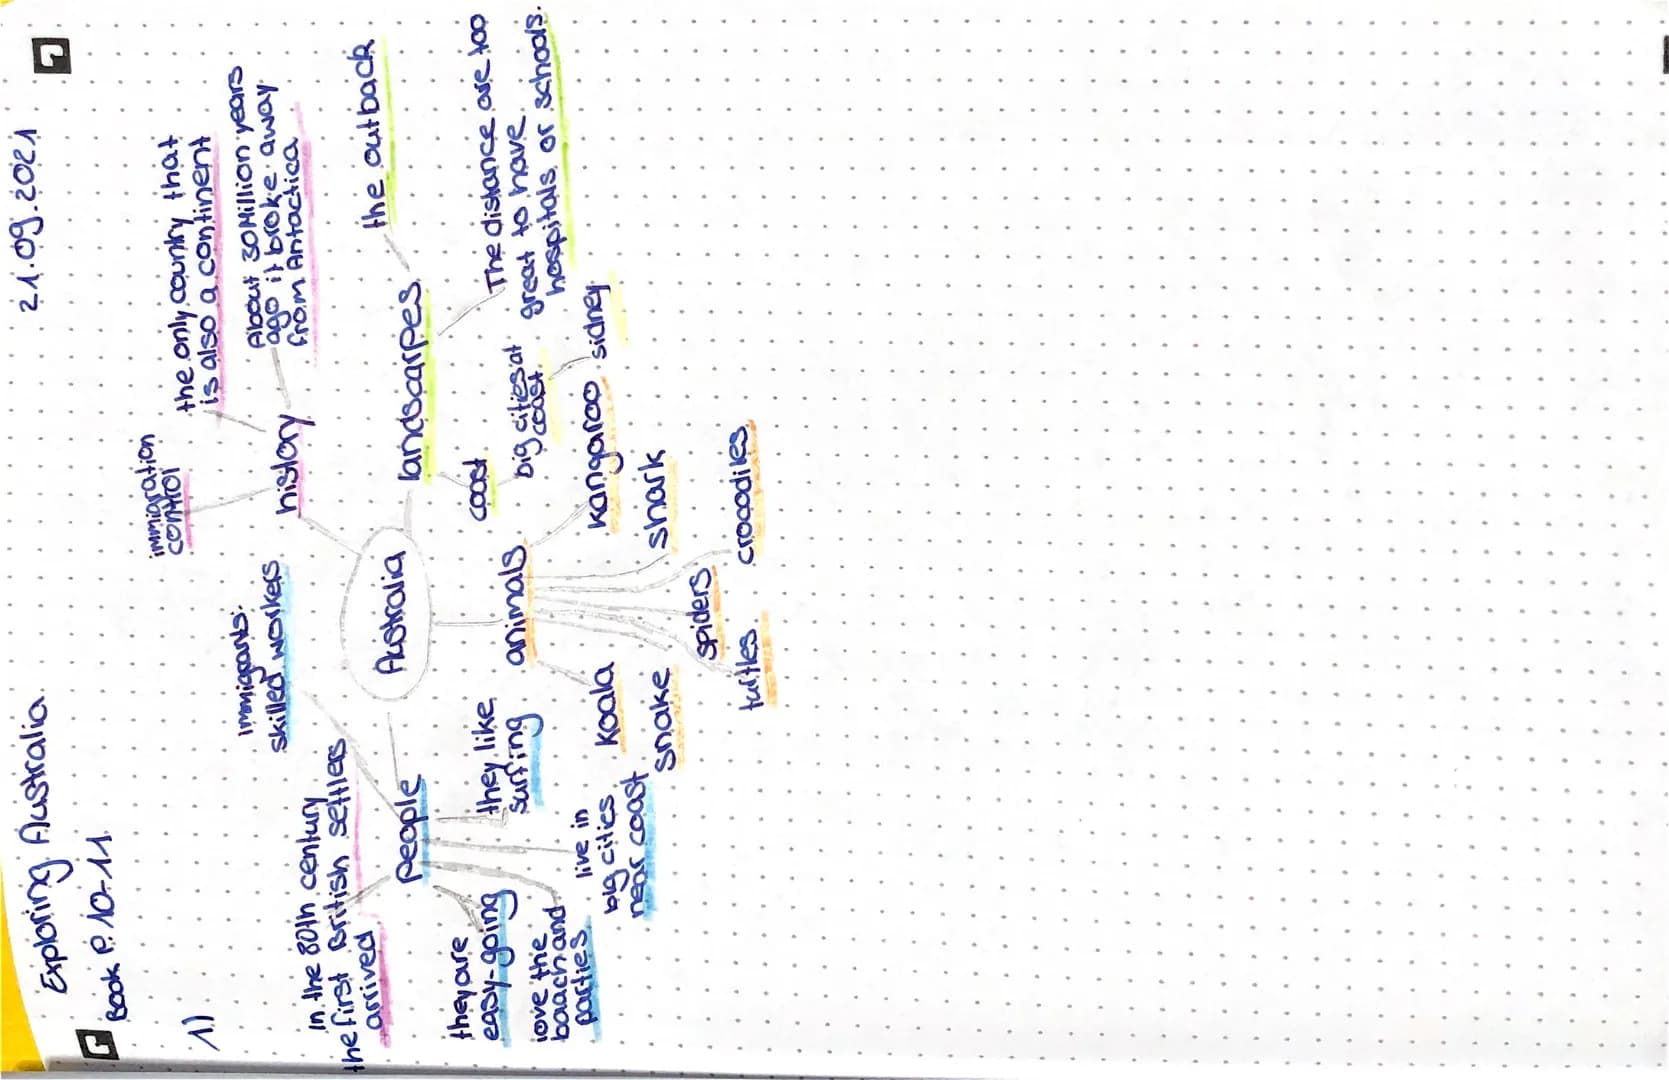 Exploring Australia
21.09.2021
Book P. 10-11
1)
Australia
history
immigration
control
the only country that
is also a continent
About 30 Million years
ago it broke away
from Antactica
landscarpes
the outback
The distance are too
great to have
hospitals or schools.
coast
big cities at
coast
sidney
animals
kangaroo
shark
crocodiles
spiders
turtles
snake
koala
people
immigrants:
skilled workers
In the 80th century
the first British settlers
arrived
they are
easy-going
love the
baach and
parties
live in
big cities
near coast
they like
surfing